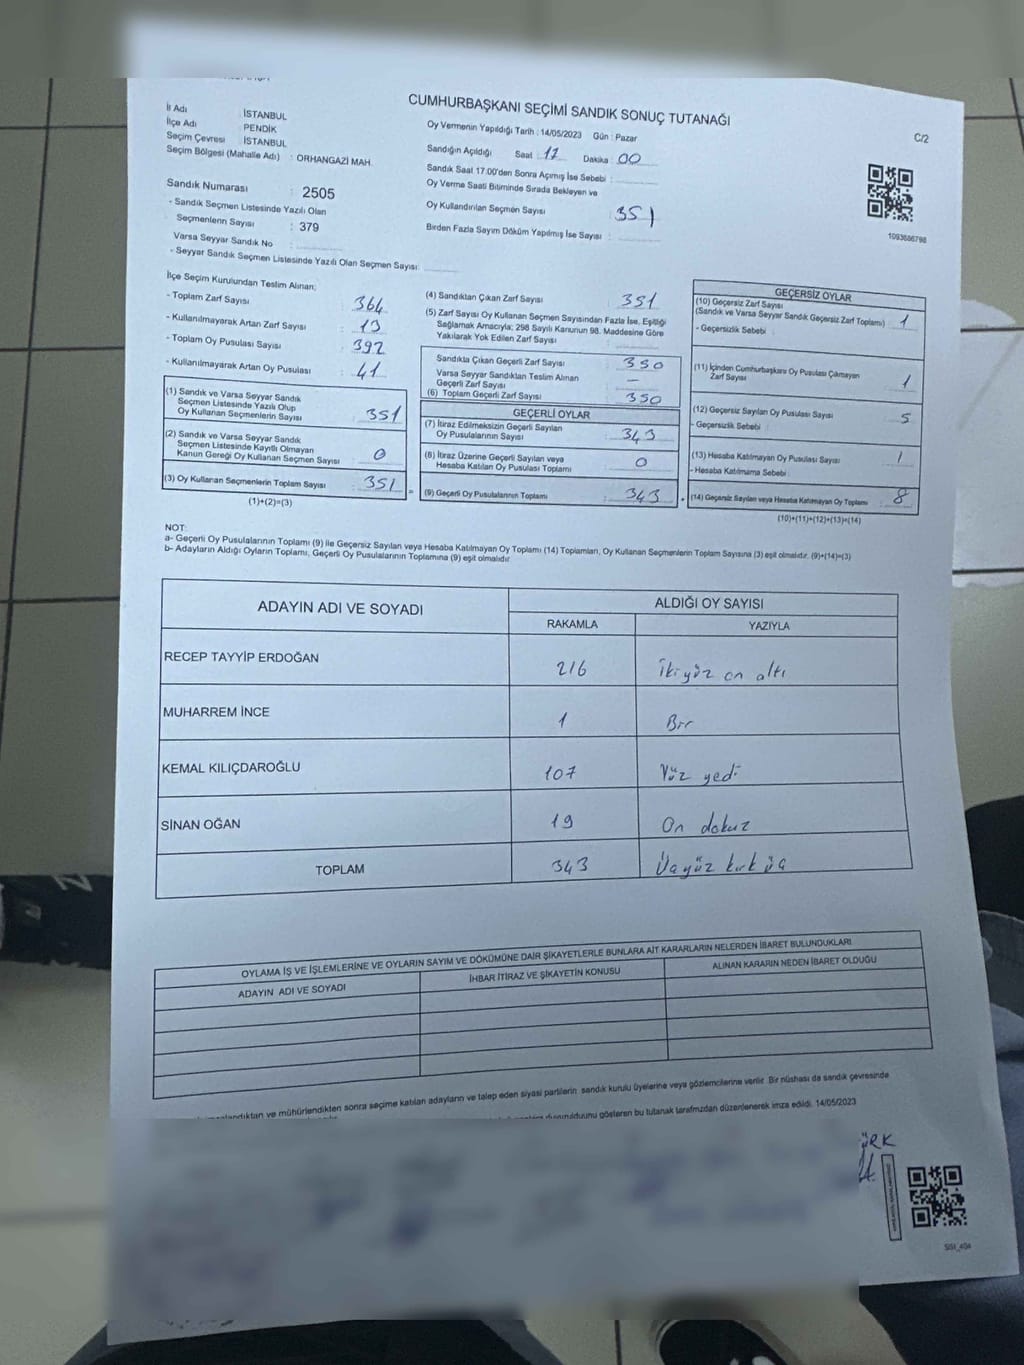 CUMHURBAŞKANI SEÇİMİ SANDIK SONUÇ TUTANAĞI
C/2
İl Adı : İSTANBUL
İlçe Adı : PENDİK
Seçim Çevresi : İSTANBUL
Seçim Bölgesi (Mahalle Adı) : ORHANGAZİ MAH.
Sandık Numarası : 2505
- Sandık Seçmen Listesinde Yazılı Olan
Seçmenlerin Sayısı : 379
Varsa Seyyar Sandık No :
- Seyyar Sandık Seçmen Listesinde Yazılı Olan Seçmen Sayısı:
Oy Vermenin Yapıldığı Tarih : 14/05/2023 Gün : Pazar
Sandığın Açıldığı Saat : 17 Dakika : 00
Sandık Saat 17.00'den Sonra Açılmış İse Sebebi :
Oy Verme Saati Bitiminde Sırada Bekleyen ve
Oy Kullandırılan Seçmen Sayısı : 351
Birden Fazla Sayım Döküm Yapılmış İse Sayısı :
1093686798
İlçe Seçim Kurulundan Teslim Alınan;
- Toplam Zarf Sayısı : 364
- Kullanılmayarak Artan Zarf Sayısı : 13
- Toplam Oy Pusulası Sayısı : 392
- Kullanılmayarak Artan Oy Pusulası : 41
(1) Sandık ve Varsa Seyyar Sandık
Seçmen Listesinde Yazılı Olup
Oy Kullanan Seçmenlerin Sayısı : 351
(2) Sandık ve Varsa Seyyar Sandık
Seçmen Listesinde Kayıtlı Olmayan
Kanun Gereği Oy Kullanan Seçmen Sayısı : 0
(3) Oy Kullanan Seçmenlerin Toplam Sayısı : 351
(1)+(2)=(3)
(4) Sandıktan Çıkan Zarf Sayısı : 351
(5) Zarf Sayısı Oy Kullanan Seçmen Sayısından Fazla İse, Eşitliği
Sağlamak Amacıyla; 298 Sayılı Kanunun 98. Maddesine Göre
Yakılarak Yok Edilen Zarf Sayısı :
Sandıkta Çıkan Geçerli Zarf Sayısı : 350
Varsa Seyyar Sandıktan Teslim Alınan
Geçerli Zarf Sayısı : -
(6) Toplam Geçerli Zarf Sayısı : 350
GEÇERLİ OYLAR
(7) İtiraz Edilmeksizin Geçerli Sayılan
Oy Pusulalarının Sayısı : 343
(8) İtiraz Üzerine Geçerli Sayılan veya
Hesaba Katılan Oy Pusulası Toplamı : 0
= (9) Geçerli Oy Pusulalarının Toplamı : 343
GEÇERSİZ OYLAR
(10) Geçersiz Zarf Sayısı
(Sandık ve Varsa Seyyar Sandık Geçersiz Zarf Toplamı) : 1
- Geçersizlik Sebebi :
(11) İçinden Cumhurbaşkanı Oy Pusulası Çıkmayan
Zarf Sayısı : 1
(12) Geçersiz Sayılan Oy Pusulası Sayısı : 5
- Geçersizlik Sebebi :
(13) Hesaba Katılmayan Oy Pusulası Sayısı : 1
- Hesaba Katılmama Sebebi :
+ (14) Geçersiz Sayılan veya Hesaba Katılmayan Oy Toplamı : 8
(10)+(11)+(12)+(13)=(14)
NOT:
a- Geçerli Oy Pusulalarının Toplamı (9) ile Geçersiz Sayılan veya Hesaba Katılmayan Oy Toplamı (14) Toplamları, Oy Kullanan Seçmenlerin Toplam Sayısına (3) eşit olmalıdır. (9)+(14)=(3)
b- Adayların Aldığı Oyların Toplamı, Geçerli Oy Pusulalarının Toplamına (9) eşit olmalıdır.
ADAYIN ADI VE SOYADI ALDIĞI OY SAYISI
RAKAMLA YAZIYLA
RECEP TAYYİP ERDOĞAN 216 İkiyüz on altı
MUHARREM İNCE 1 Bir
KEMAL KILIÇDAROĞLU 107 Yüz yedi
SİNAN OĞAN 19 On dokuz
TOPLAM 343 Üçyüz kırk üç
OYLAMA İŞ VE İŞLEMLERİNE VE OYLARIN SAYIM VE DÖKÜMÜNE DAİR ŞİKAYETLERLE BUNLARA AİT KARARLARIN NELERDEN İBARET BULUNDUKLARI
ADAYIN ADI VE SOYADI İHBAR İTİRAZ VE ŞİKAYETİN KONUSU ALINAN KARARIN NEDEN İBARET OLDUĞU
ve mühürlendikten sonra seçime katılan adayların ve talep eden siyasi partilerin sandık kurulu üyelerine veya gözlemcilerine verilir. Bir nüshası da sandık çevresinde
gösteren bu tutanak tarafımızdan düzenlenerek imza edildi. 14/05/2023